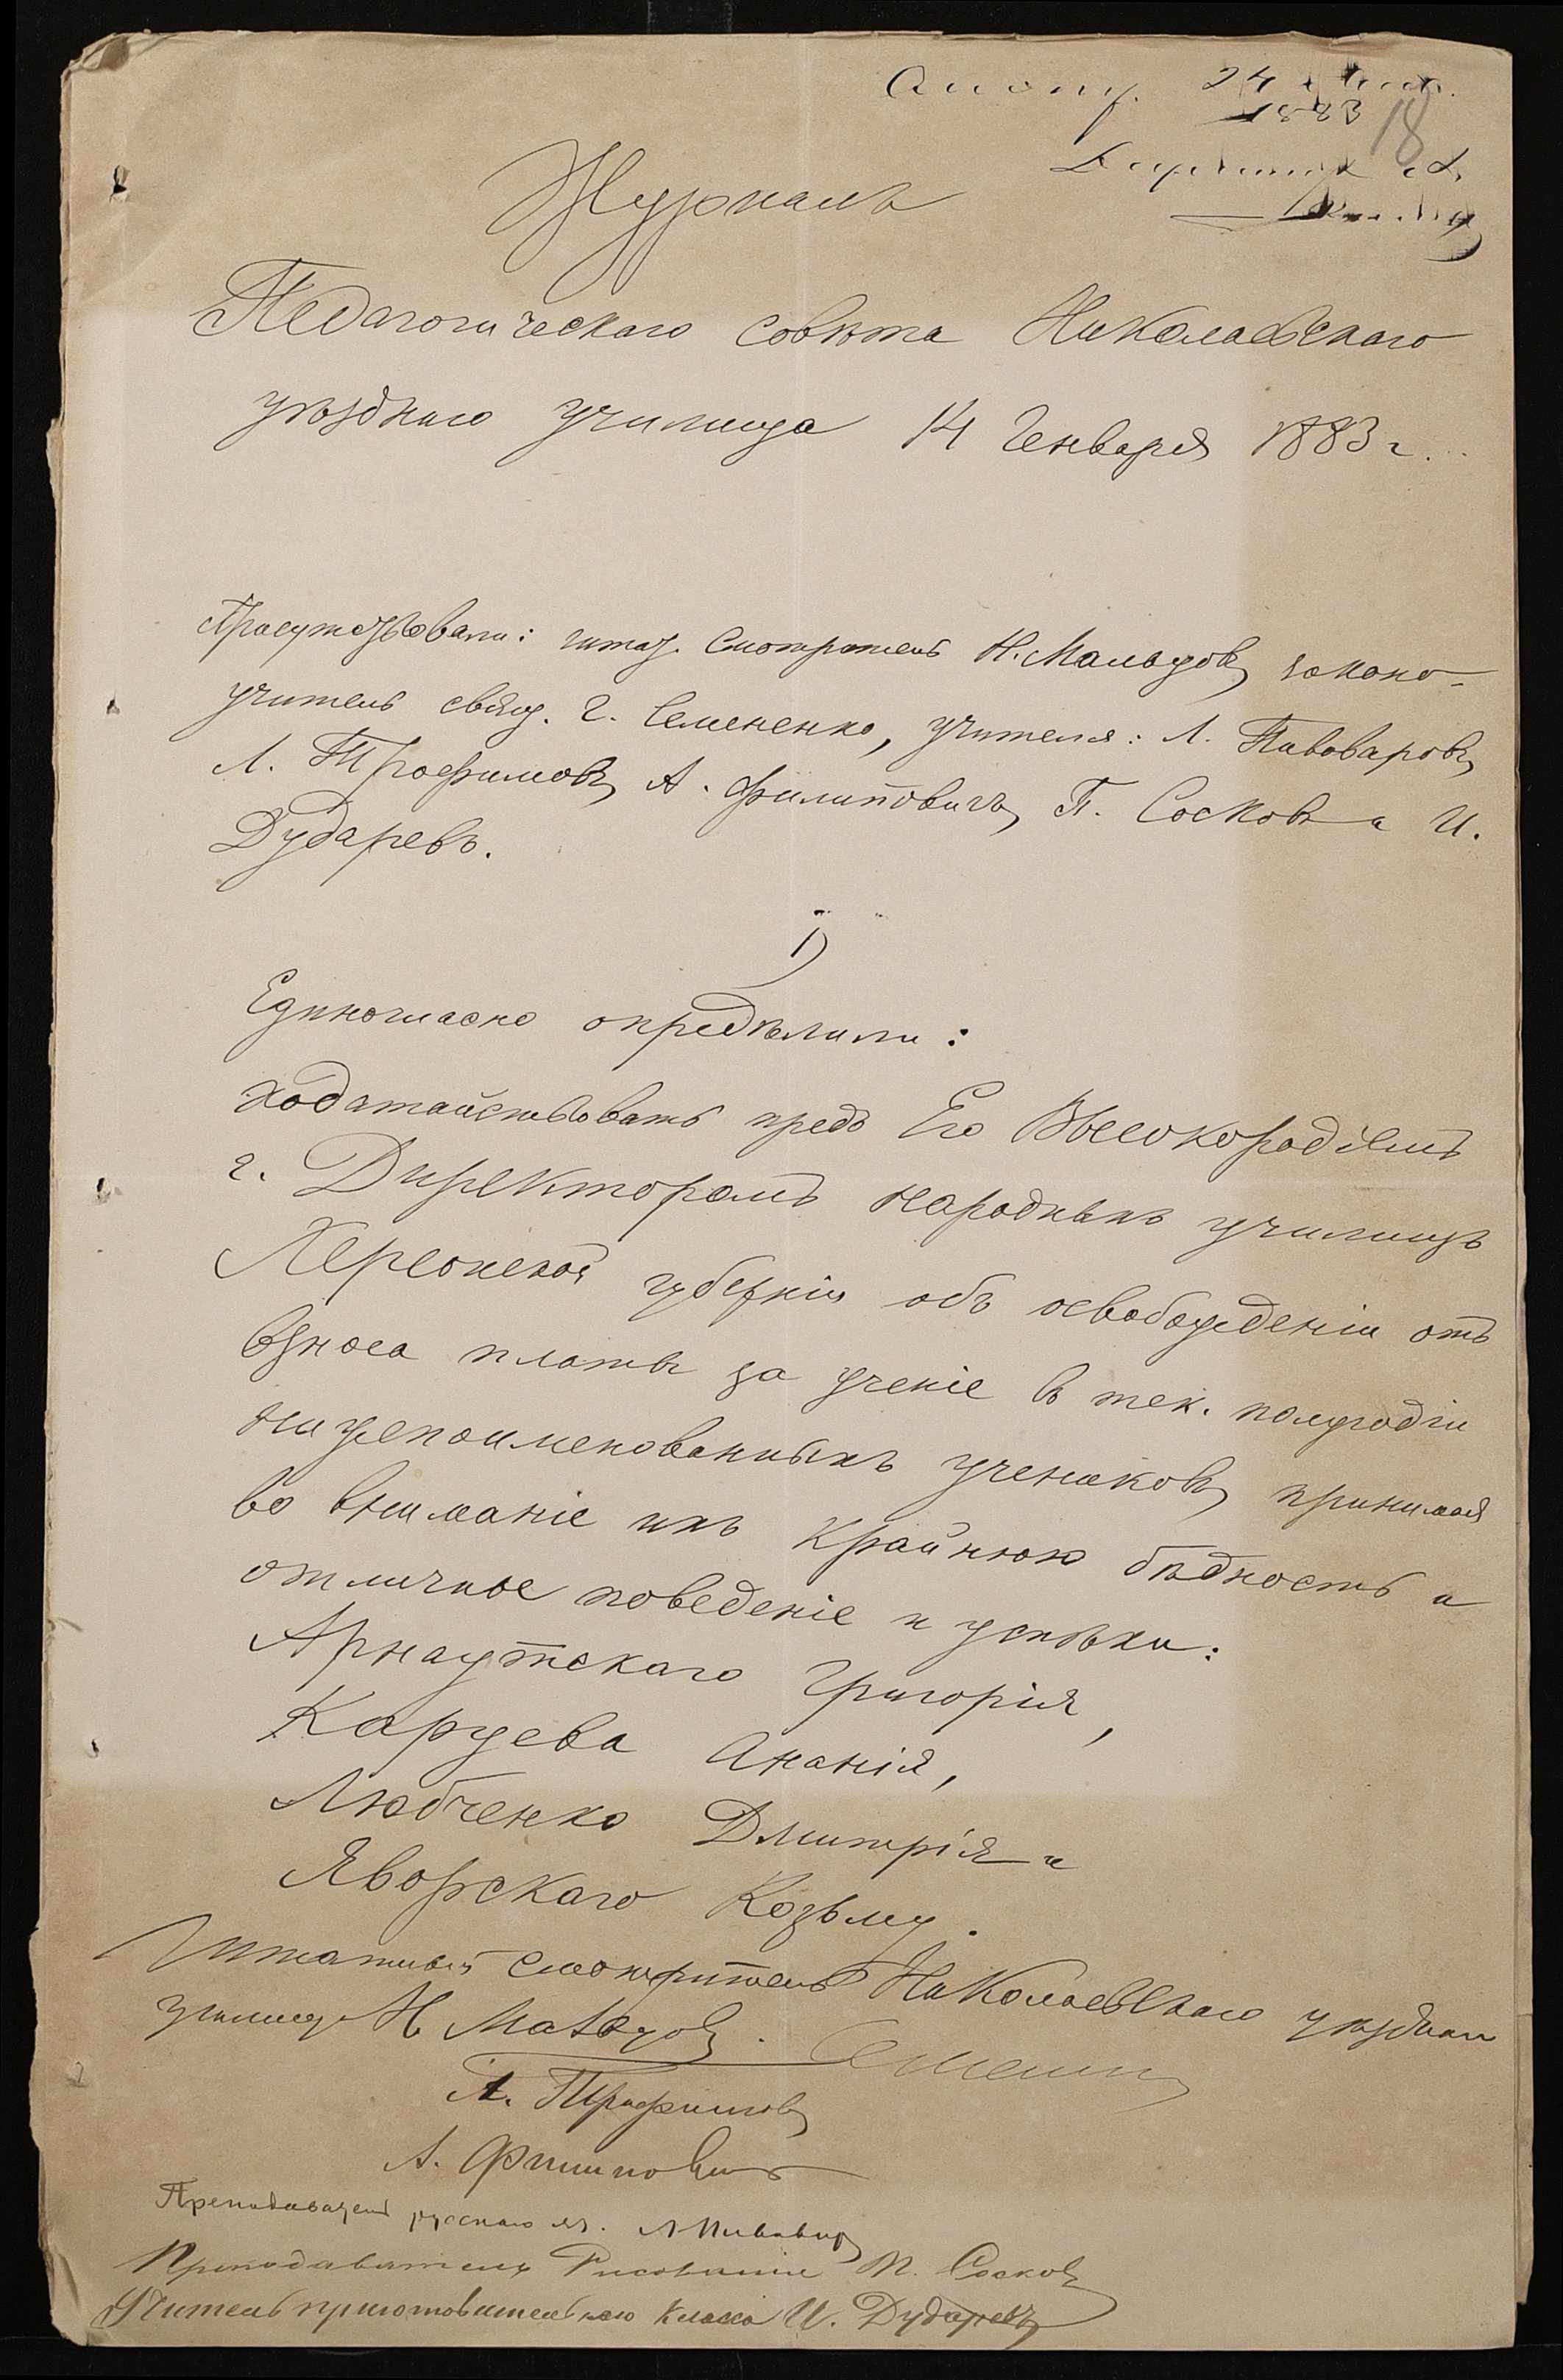 24
1883
18
Журналъ
Педагогическаго совѣта Николаевскаго
уѣзднаго училища 14 Генваря 1883 г.
Присутствовали: штат. Смотритель Н. Мальцовъ, законо-
учитель свящ. Г. Семененко, учителя: Л. Пивоваровъ,
Л. Трофимовъ, А. Филиповичъ, П. Сосковъ и И.
Дударевъ.
1)
Единогласно опредѣлили:
ходатайствовать предъ Его Высокородіемъ
г. Директоромъ народныхъ училищъ
Херсонской губерніи объ освобожденіи отъ
взноса платы за ученіе въ тек. полугодіи
нижепоименованныхъ учениковъ, принимая
во вниманіе ихъ крайнюю бѣдность и
отличное поведеніе и успѣхи:
Арнаутскаго Григорія,
Карцева Ананія,
Любченко Дмитрія и
Яворскаго Козьму.
Штатный смотритель Николаевскаго уѣзднаго
училища Н. Мальцовъ.
Л. Трофимовъ
А. Филиповичъ
Преподаватель русскаго яз. Л. Пивоваровъ
Преподаватель Рисованія П. Сосковъ
Учитель приготовительнаго класса И. Дударевъ